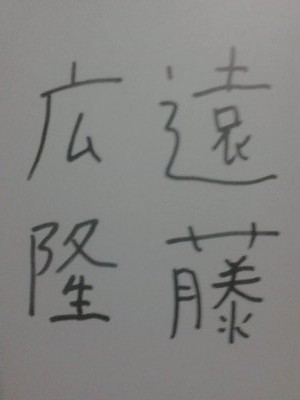 遠藤
広隆